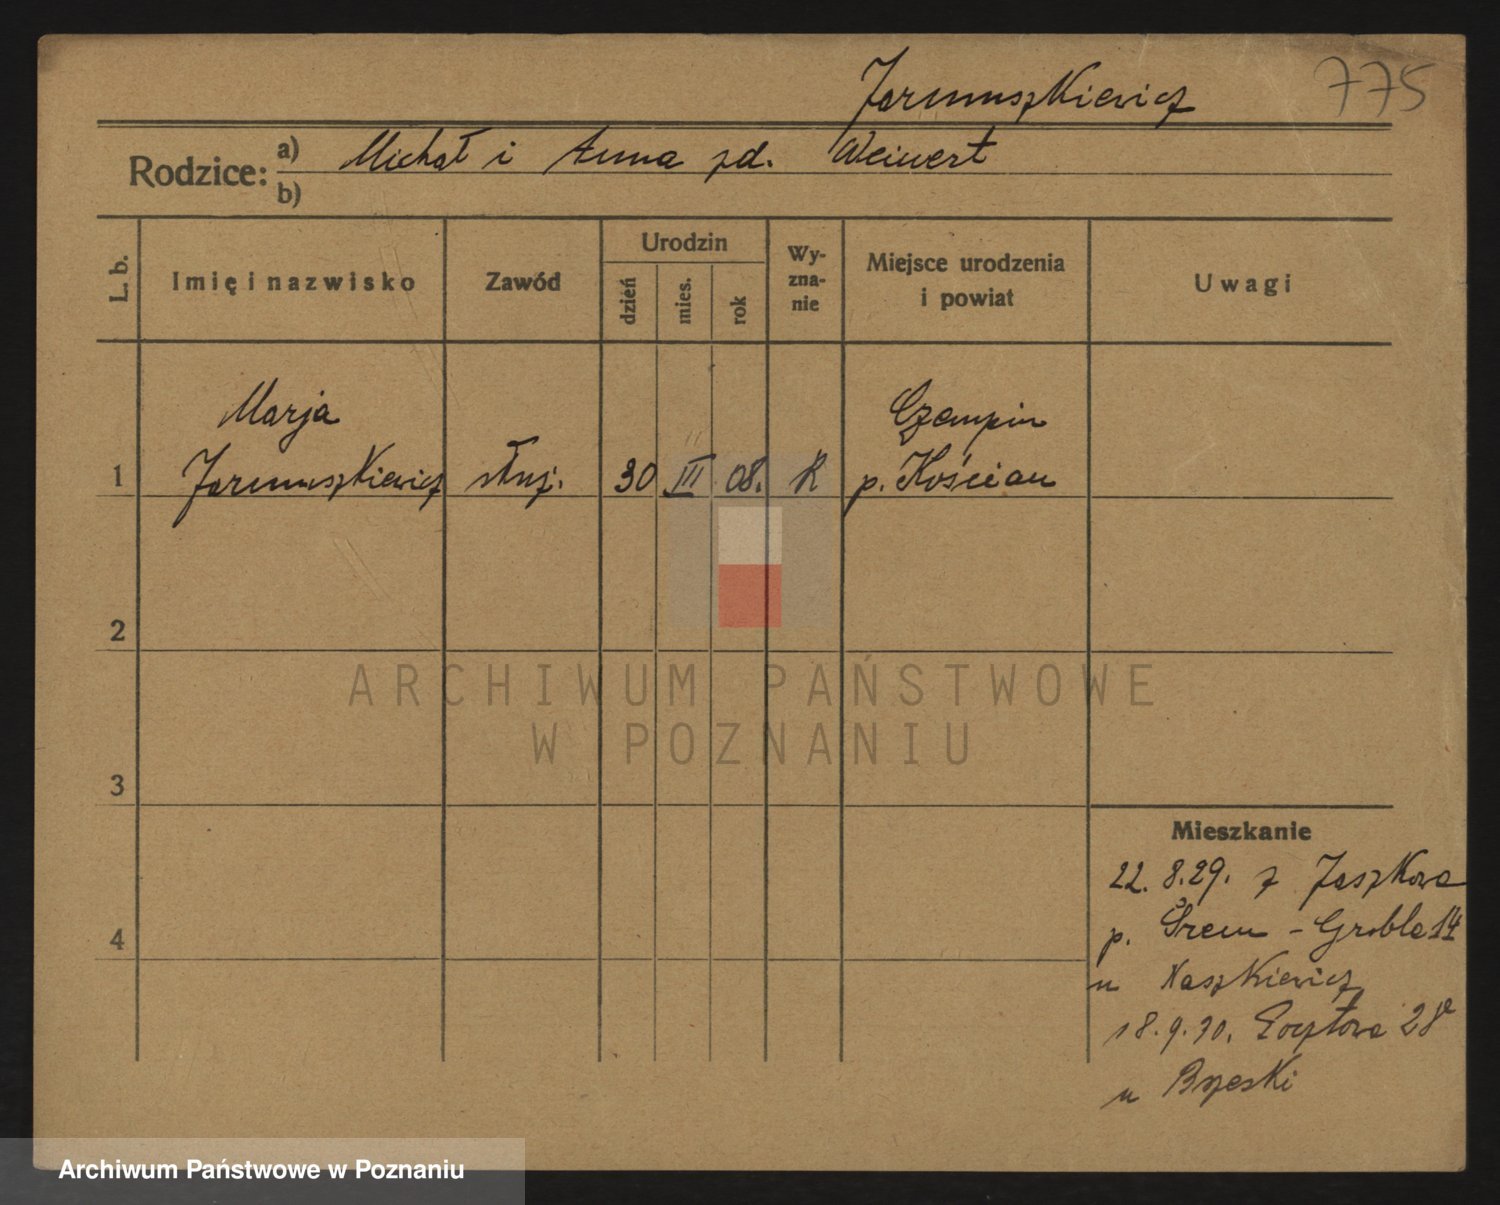 Jarmuszkiewicz 775
Rodzice: a) Michał i Anna zd. Weinert
b)
L. b. Imię i nazwisko Zawód Urodzin dzień mies. rok Wyznanie Miejsce urodzenia i powiat Uwagi
Marja Czempin
1 Jarmuszkiewicz służ. 30 III 08. R p. Kościan
2
ARCHIWUM PAŃSTWOWE
W POZNANIU
3
Mieszkanie
22. 8.29. z Jaszkowa
4 p. Śrem - Grobla 14
u Kaszkiewicz
18.9.30. Pocztowa 28
u Brzeski
Archiwum Państwowe w Poznaniu